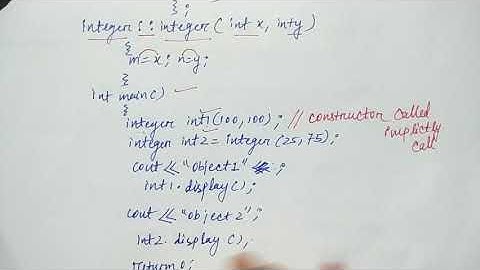 };
integer :: integer (int x, int y)
{
m=x; n=y;
}
int main()
{
integer int1(100,100); // constructor called implictly call
integer int2 = integer (25,75);
cout << "object1" << ;
int1.display();
cout << "object2";
int2.display();
return 0;